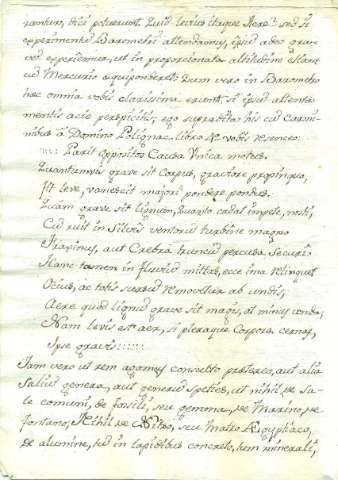 rantur, dici poterunt. Quid levius itaque Aere? sed si
experimentu Barometri attendamus, ipsu adeo gra-
ve experiemur, ut in proportionata altitudine
cu Mercurio equiponderet. Dum vero in Barometro
hæc omnia vobis clarissima erunt, si ipsu attenta
mentis acie perspiciatis, ego supradicta his cu carmi-
nibus à Domino Polignac libro 4 vobis
Parit oppositos Causa Unica motus.
Quantumvis grave sit Corpus, graviore propinquo,
Fit leve, vanescit majori pondere pondus.
Quam grave sit lignum, quanto cadat impete, nosti,
Cu ruit in Silvis ventorum turbine magno
Fraxinus, aut Crebrâ truncus percussa Securi:
Hanc tamen in fluviu mittas, ecce ima relinquet
Ocius, ac totis sursu removetur ab undis,
Aere quod lignu grave sit magis, at minus unda;
Nam levis est aer, si pleraque Corpora cernas,
Ipse gravis
Iam vero ut rem agamus consulto prætereo, aut alia
Saliu genera, aut generu species, ut nihil de Sa-
le comuni, de fossili, seu gemma, de Marino, de
fontano; Nihil de Nitro, seu Natro Ægyptiaco,
de alumine, tu in lapidibus concreto, tum minerali,